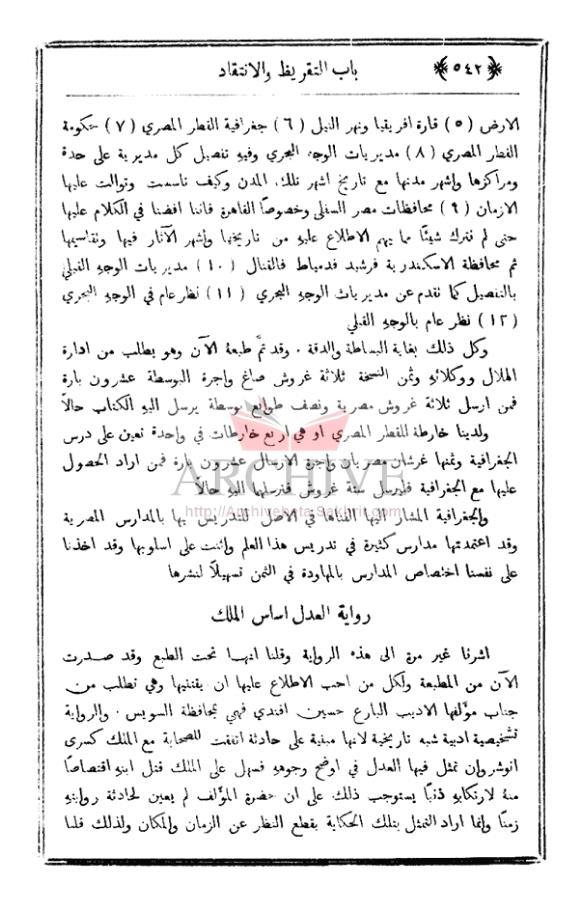 ﴿٥٤٢﴾ باب التقريظ والانتقاد
الارض (٥) قارة افريقيا ونهر النيل (٦) جغرافية القطر المصري (٧) حكومة
القطر المصري (٨) مديريات الوجه البحري وفيهِ تفصيل كل مديرية على حدة
ومراكزها واشهر مدنها مع تاريخ اشهر تلك المدن وكيف تاسست وتوالت عليها
الازمان (٩) محافظات مصر السفلى وخصوصاً القاهرة فاننا افضنا في الكلام عليها
حتى لم نترك شيئًا مما يهم الاطلاع عليهِ من تاريخها واشهر الآثار فيها وتقاسيمها
ثم محافظة الاسكندرية فرشيد فدمياط فالقنال (١٠) مديريات الوجه القبلي
بالتفصيل كما تقدم عن مديريات الوجه البحري (١١) نظر عام في الوجه البحري
(١٢) نظر عام بالوجه القبلي
وكل ذلك بغاية البساطة والدقة ٠ وقد تمَّ طبعهُ الآن وهو يطلب من ادارة
الهلال ووكلائهِ وثمن النسخة ثلاثة غروش صاغ واجرة البوسطة عشرون بارة
فمن ارسل ثلاثة غروش مصرية ونصف طوابع بوسطة يرسل اليهِ الكتاب حالاً
ولدينا خارطة للقطر المصري او هي اربع خارطات في واحدة تعين على درس
الجغرافية وثمنها غرشان مصريان واجرة الارسال عشرون بارة فمن اراد الحصول
عليها مع الجغرافية فليرسل ستة غروش فنرسلها اليهِ حالاً
ARCHIVE
http://Archivebeta.Sakhrit.com
والجغرافية المشار اليها الفناها في الاصل للتدريس بها بالمدارس المصرية
وقد اعتمدتها مدارس كثيرة في تدريس هذا العلم واثنت على اسلوبها وقد اخذنا
على نفسنا اختصاص المدارس بالمهاودة في الثمن تسهيلاً لنشرها
رواية العدل اساس الملك
اشرنا غير مرة الى هذه الرواية وقلنا انهـا تحت الطبع وقد صـدرت
الآن من المطبعة ولكل من احب الاطلاع عليها ان يقتنيها وهي تطلب مـن
جناب مؤلفها الاديب البارع حسين افندي فهمي بمحافظة السويس ٠ والرواية
تشخيصية ادبية شبه تاريخية لانها مبنية على حادثة اتفقت للصحابة مع الملك كسرى
انوشروان تمثل فيها العدل في اوضح وجوههِ فسهل على الملك قتل ابنهِ اقتصاصًا
منهُ لارتكابهِ ذنبًا يستوجب ذلك على ان حضرة المؤلف لم يعين لحادثة روايتهِ
زمنًا وانما اراد التمثل بتلك الحكاية بقطع النظر عن الزمان والمكان ولذلك قلنا